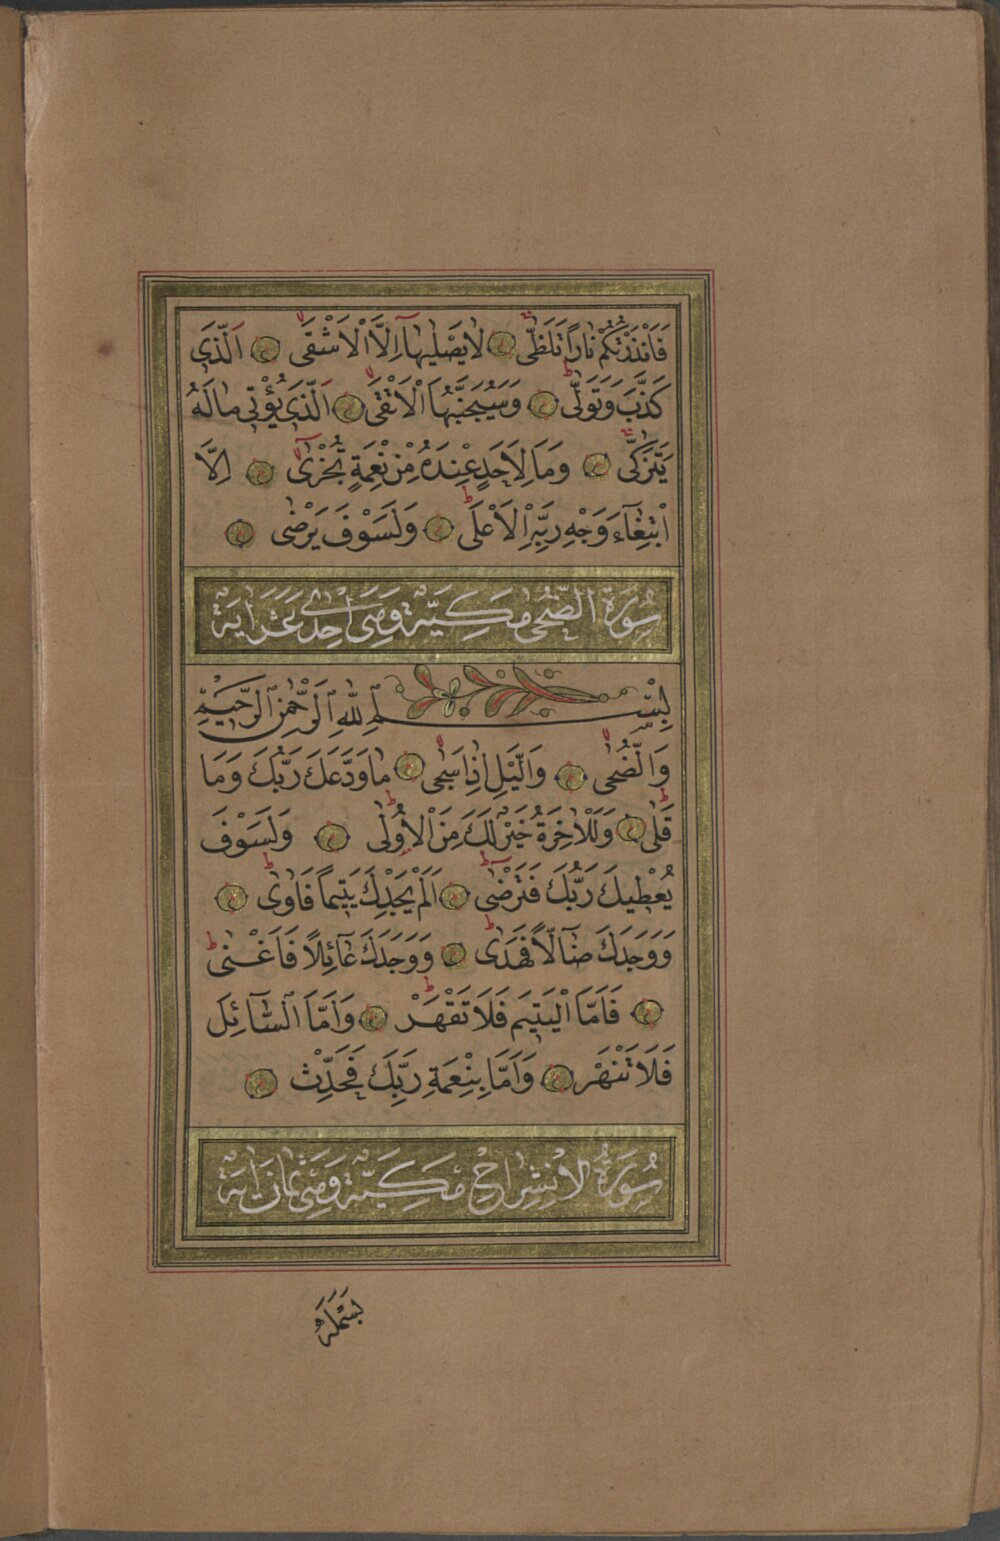 فَاَنْذَرْتُكُمْ نَاراً تَلَظّٰى لَا يَصْلٰيهَٓا اِلَّا الْاَشْقَى اَلَّذٖى
كَذَّبَ وَتَوَلّٰى وَسَيُجَنَّبُهَا الْاَتْقَى اَلَّذٖى يُؤْتٖى مَالَهُ
يَتَزَكّٰى وَمَا لِاَحَدٍ عِنْدَهُ مِنْ نِعْمَةٍ تُجْزٰى اِلَّا
ابْتِغَٓاءَ وَجْهِ رَبِّهِ الْاَعْلٰى وَلَسَوْفَ يَرْضٰى
سُورَةُ الضُّحٰى مَكِّيَّةٌ وَهِىَ اِحْدٰى عَشَرَ اٰيَةً
بِسْمِ اللّٰهِ الرَّحْمٰنِ الرَّحٖيمِ
وَالضُّحٰى وَالَّيْلِ اِذَا سَجٰى مَا وَدَّعَكَ رَبُّكَ وَمَا
قَلٰى وَلَلْاٰخِرَةُ خَيْرٌ لَكَ مِنَ الْاُولٰى وَلَسَوْفَ
يُعْطٖيكَ رَبُّكَ فَتَرْضٰى اَلَمْ يَجِدْكَ يَتٖيماً فَاٰوٰى
وَوَجَدَكَ ضَٓالّاً فَهَدٰى وَوَجَدَكَ عَٓائِلاً فَاَغْنٰى
فَاَمَّا الْيَتٖيمَ فَلَا تَقْهَرْ وَاَمَّا السَّٓائِلَ
فَلَا تَنْهَرْ وَاَمَّا بِنِعْمَةِ رَبِّكَ فَحَدِّثْ
سُورَةُ الْاِنْشِرَاحِ مَكِّيَّةٌ وَهِىَ ثَمَانُ اٰيَةٍ
بَسْمَلَه